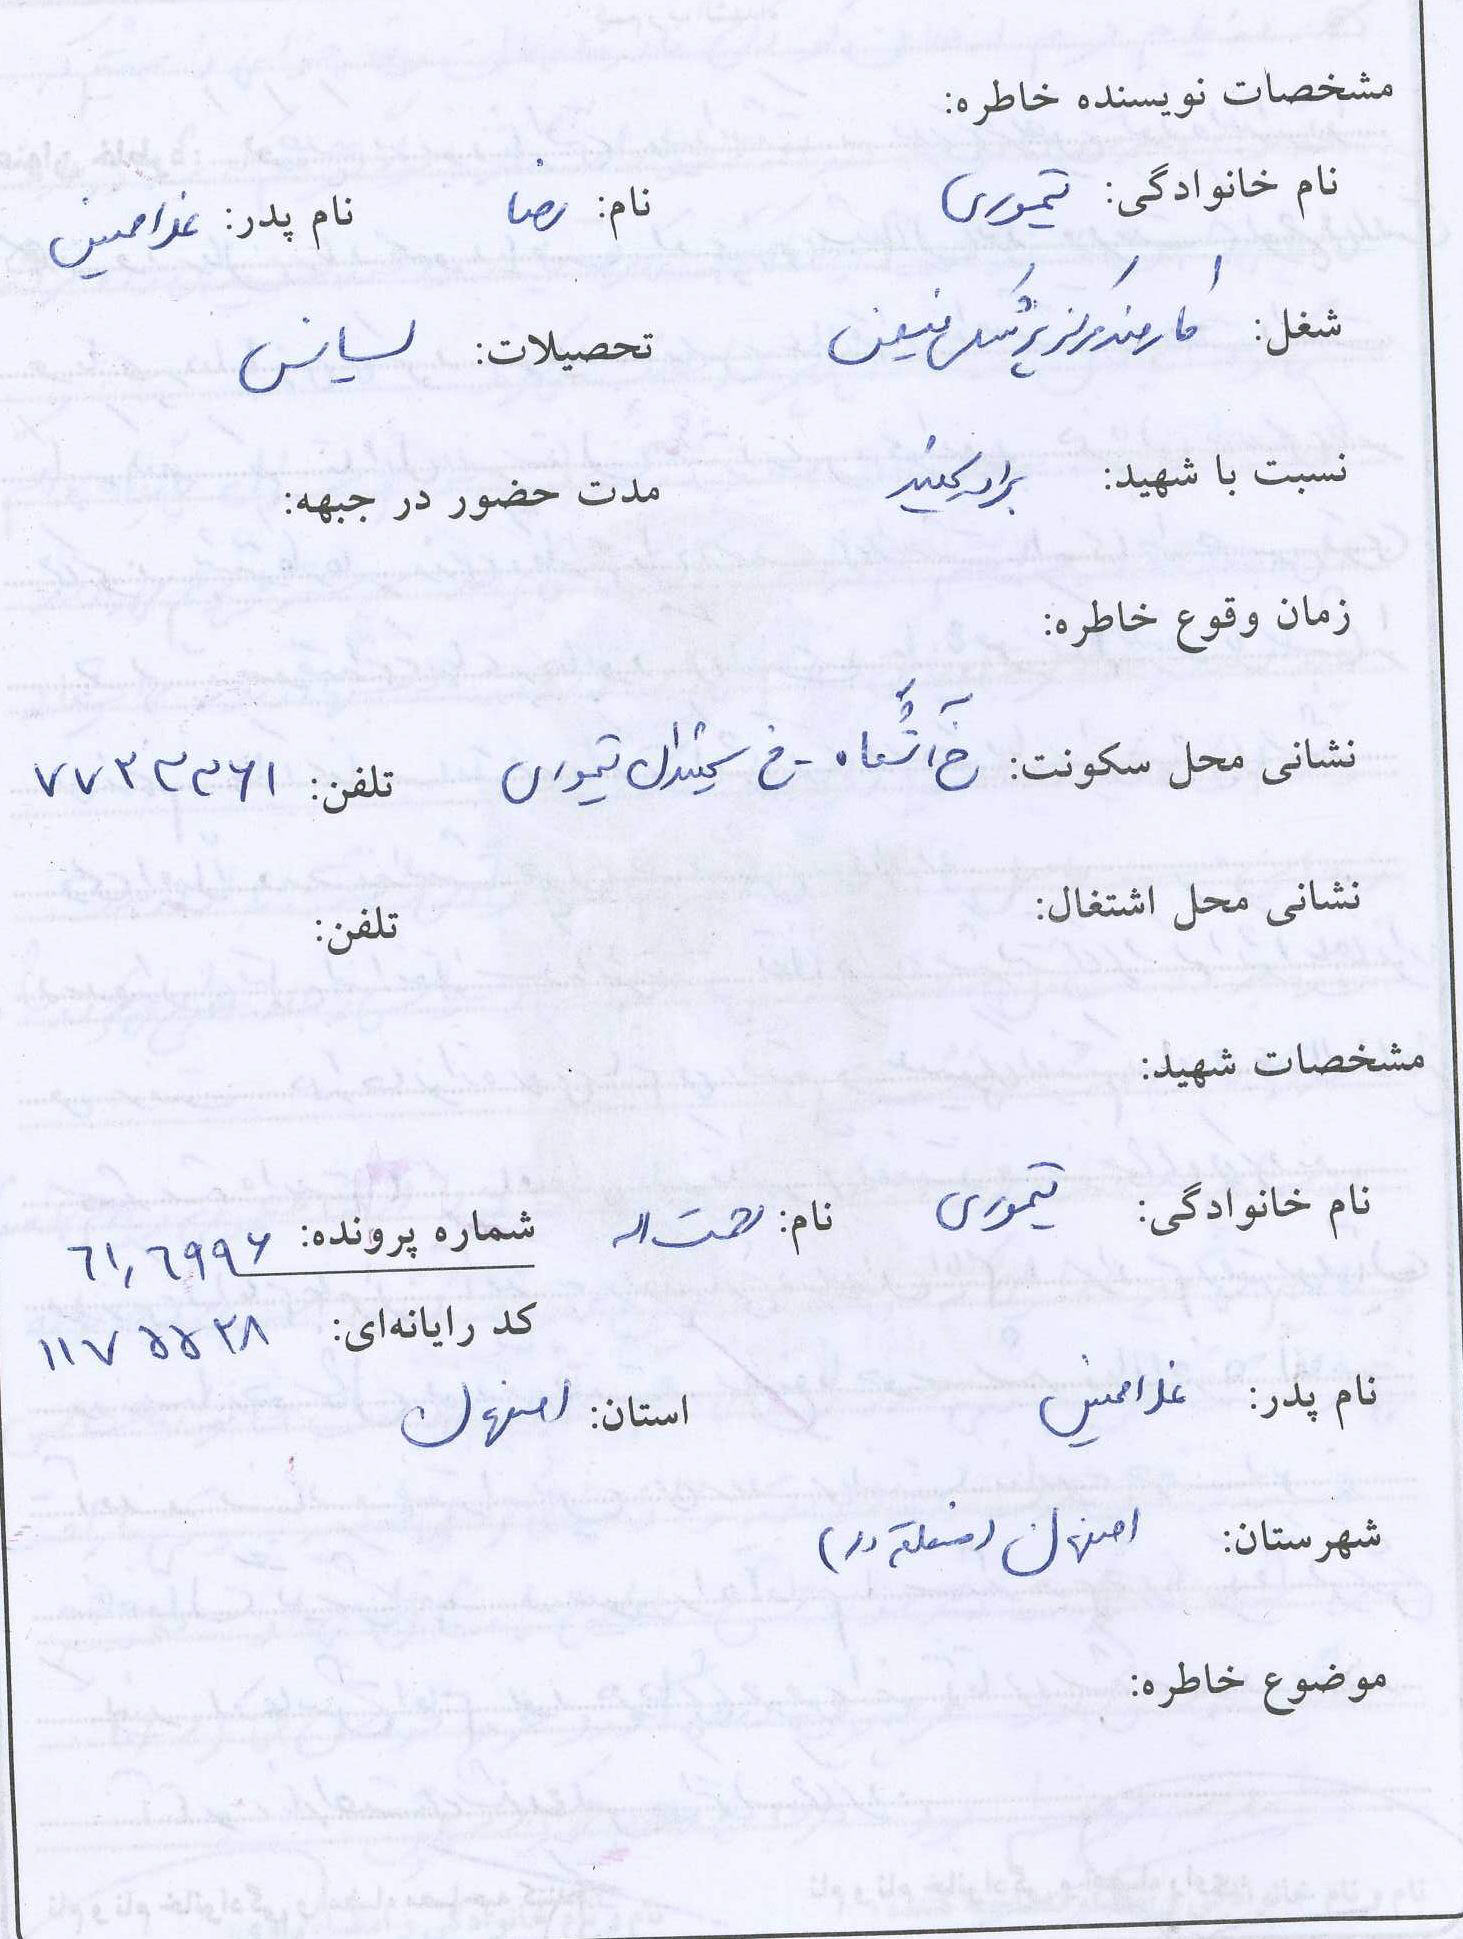 مشخصات نویسنده خاطره:
نام خانوادگی: تیموری نام: رضا نام پدر: غلامحسین
شغل: کارمند مرکز پزشکی تحصیلات: لیسانس
نسبت با شهید: برادر شهید مدت حضور در جبهه:
زمان وقوع خاطره:
نشانی محل سکونت: خ آتشگاه - خ شهیدان تیموری تلفن: ۷۷۳۳۳۶۱
نشانی محل اشتغال: تلفن:
مشخصات شهید:
نام خانوادگی: تیموری نام: نعمت اله شماره پرونده: ۶۱٫۶۹۹۶
کد رایانه‌ای: ۱۱۷۵۵۲۸
نام پدر: غلامحسین استان: اصفهان
شهرستان: اصفهان (منطقه دو)
موضوع خاطره: